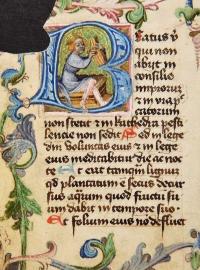 Beatus vͥ
qui non
abiit in
consilio
impioruꝫ
⁊ in via pec
catorum
non stetit ⁊ in kathedra pesti
lencie non sedit Sed in lege
dni voluntas eius ⁊ in lege
eius meditabitur die ac noc
te Et erit tamqm lignum
qd plantatum ē secus decur
sus aquarum quod fructū su
um dabit in tempore suo
Et folium eius no defluet